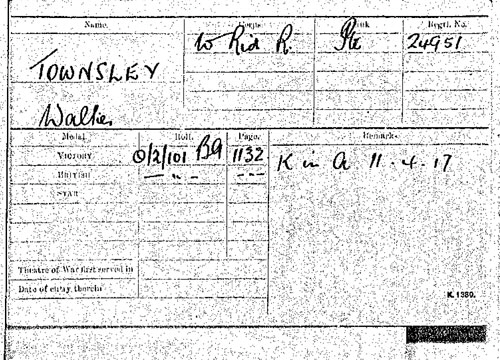 Name. Corps. Rank Regtl. No.
W Rid R. Pte 24951
TOWNSLEY
Walter
Medal. Roll. Page. Remarks.
VICTORY O/2/101 B9 1132 K in A 11.4.17
BRITISH — „ — - - -
STAR
Theatre of War first served in
Date of entry therein
K. 1380.